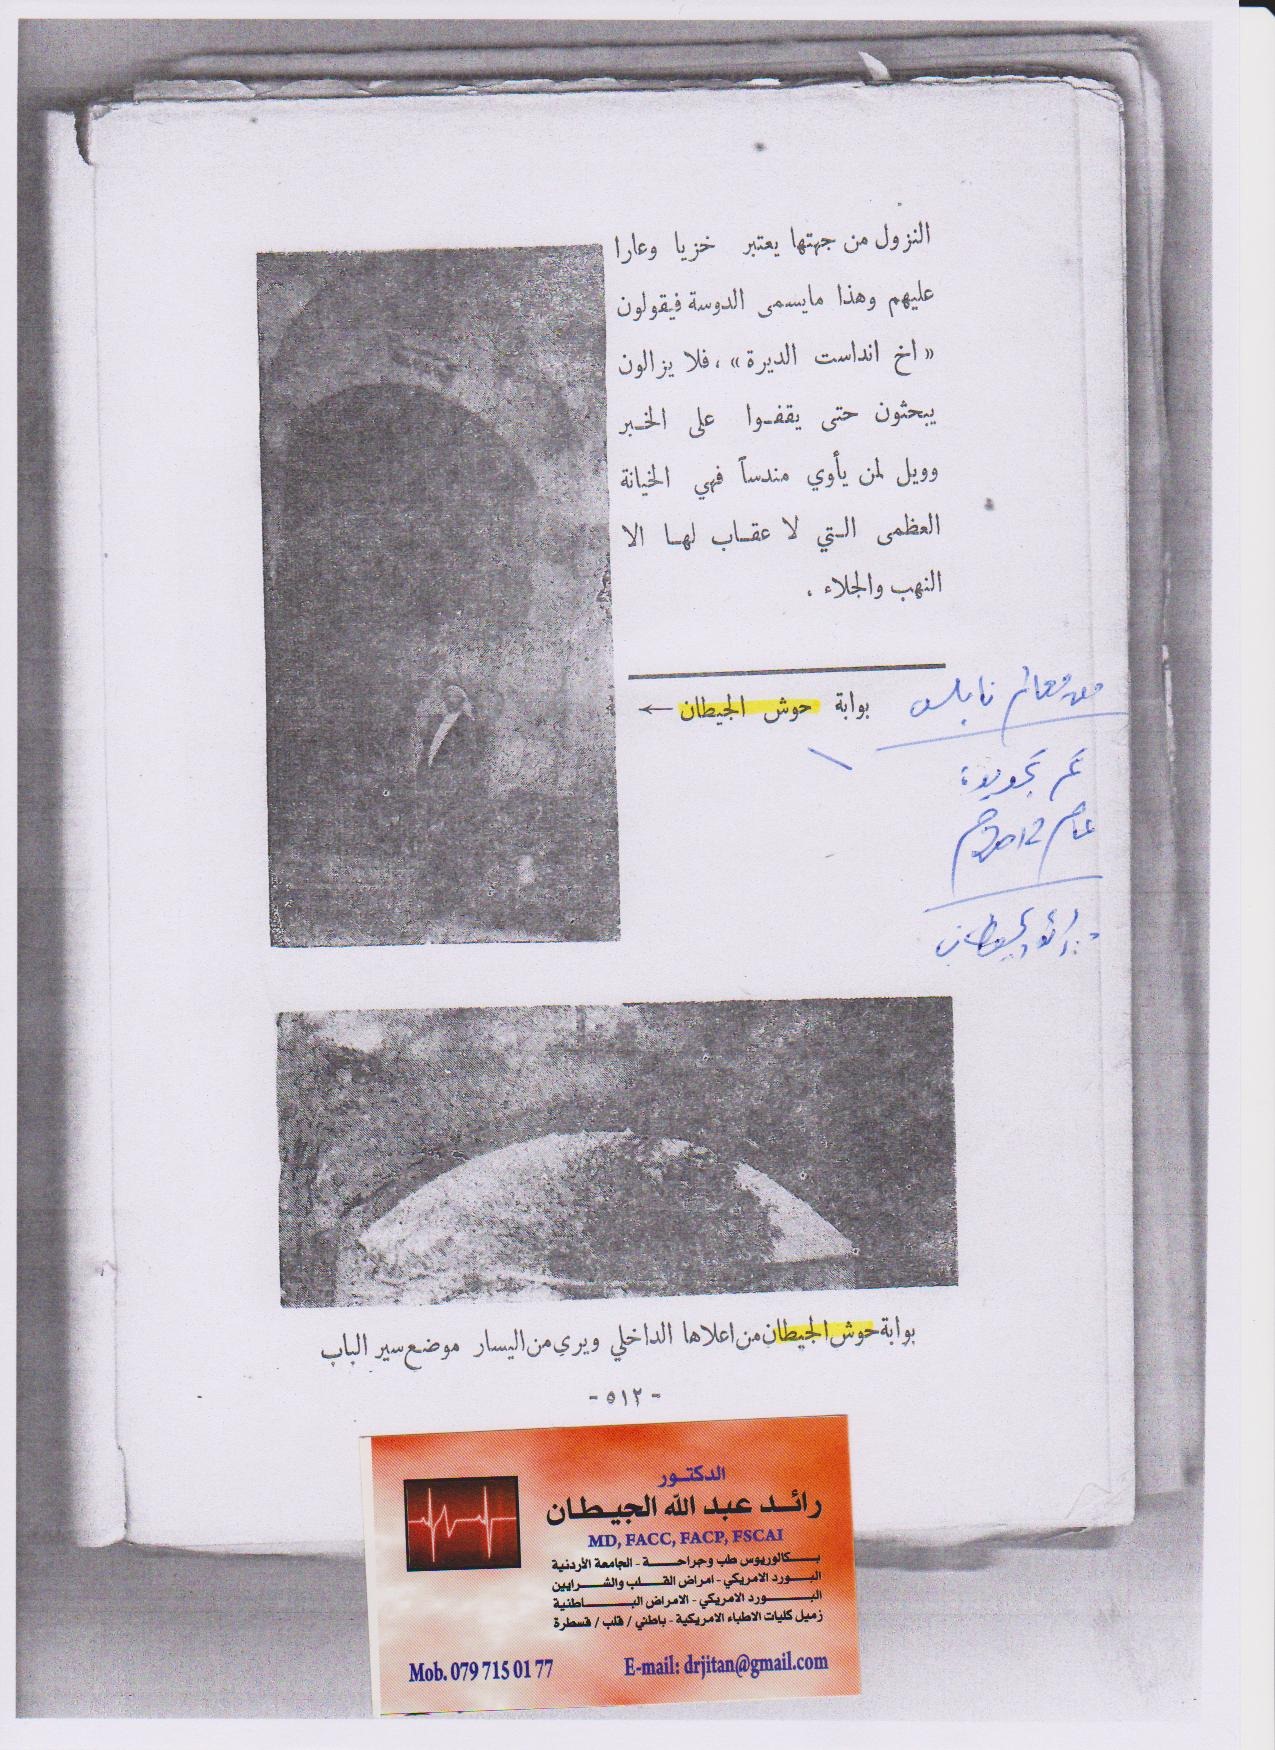 النزول من جهتها يعتبر خزيا وعارا
عليهم وهذا مايسمى الدوسة فيقولون
« اخ انداست الديرة » ، فلا يزالون
يبحثون حتى يقفـوا على الخـبر
وويل لمن يأوي مندساً فهي الخيانة
العظمى الـتي لا عقـاب لهـا الا
النهب والجلاء .
بوابة حوش الجيطان ←
من معالم نابلس
تم تجديده
عام 2012م
د. رائد الجيطان
بوابة حوش الجيطان من اعلاها الداخلي ويري من اليسار موضع سير الباب
- ٥١٢ -
الدكتـور
رائـد عبد الله الجيـطـان
MD, FACC, FACP, FSCAI
بـكالوريوس طب وجراحـة - الجامعة الأردنية
البـورد الامريكي - امراض القـلب والشـرايين
البـورد الامريكي - الامراض البـاطنية
زميل كليات الاطباء الامريكية - باطني / قلب / قسطرة
Mob. 079 715 01 77
E-mail: drjitan@gmail.com